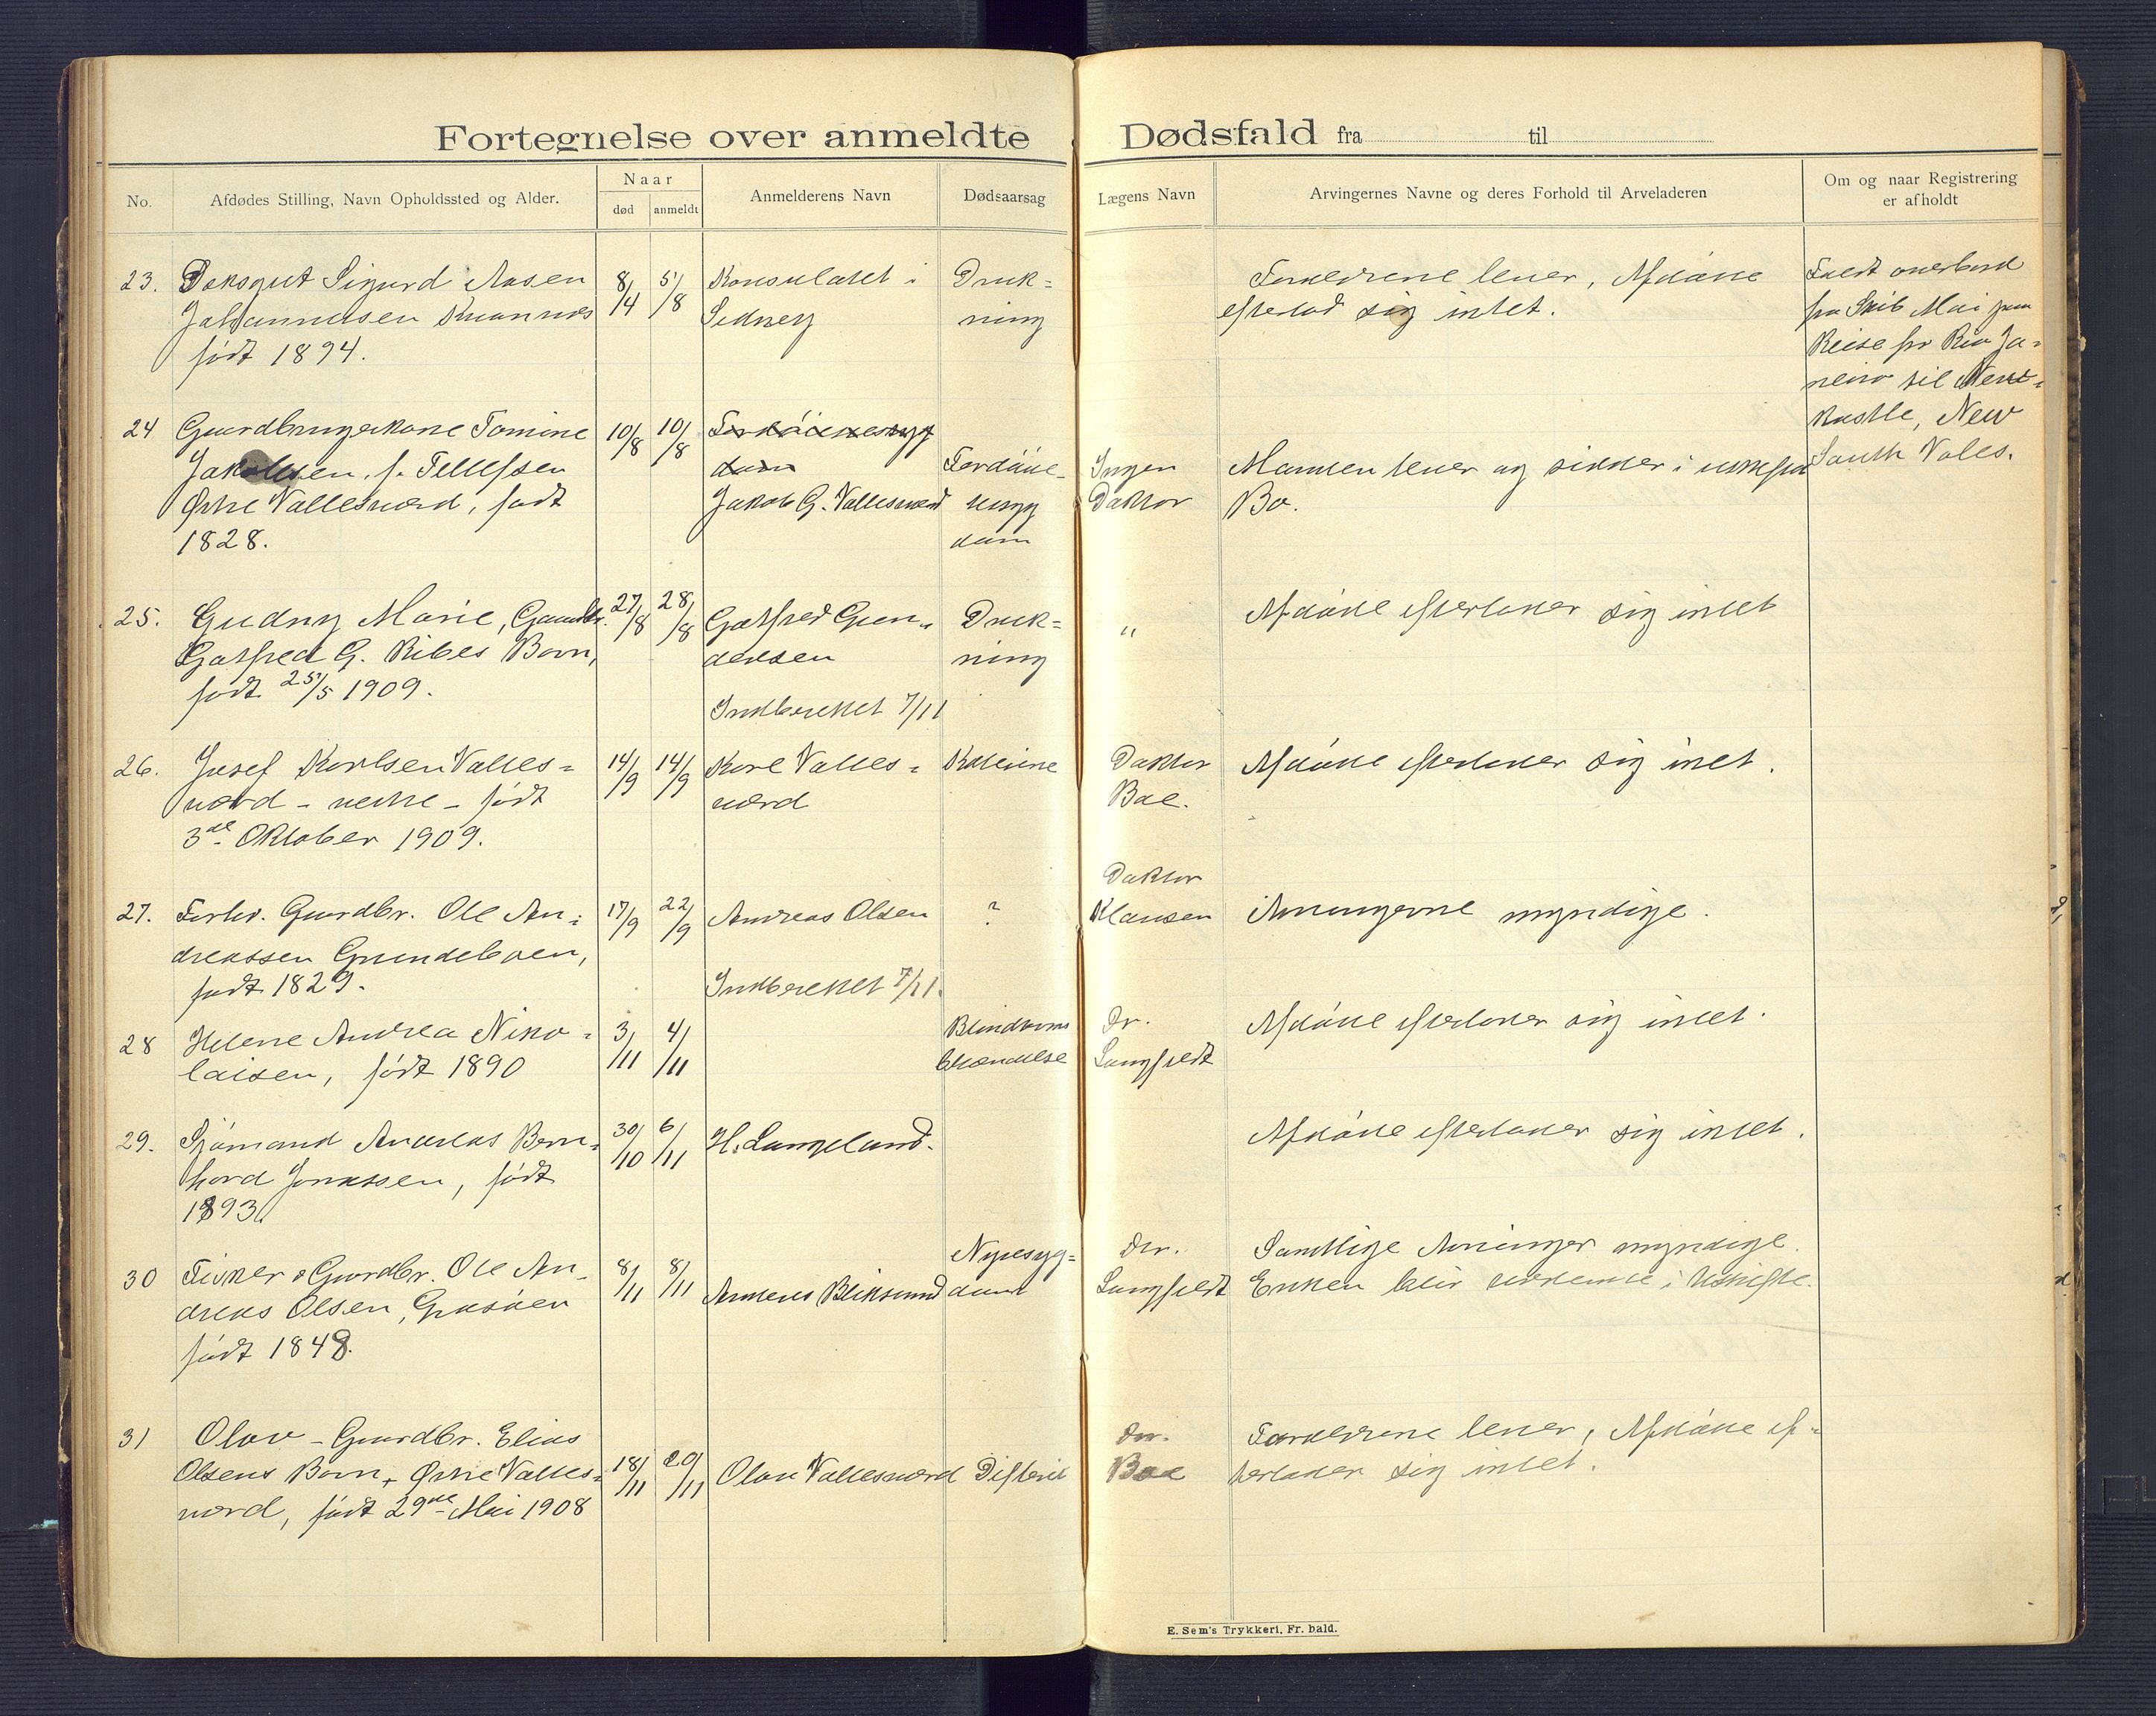 Fortegnelse over anmeldte Dødsfald fra til
No. Afdødes Stilling, Navn Opholdssted og Alder. Naar død anmeldt Anmelderens Navn Dødsaarsag Lægens Navn Arvingernes Navne og deres Forhold til Arveladeren Om og naar Registrering er afholdt
23. Deksgut Sigurd Aasen
Johannesen
født 1894.
8/4 5/8
Konsulatet i
Sidney
Druk=
ning
Forældrene lever, Afdøde
efterlod sig intet.
Faldt overbord
fra Skib Mai paa
Reise fra Rio Ja=
neiro til New=
kastle, New
South Vales.
24 Gaardbrugerkone Tomine
Jakobsen, f. Tellefsen
Østre Vallesværd, født
1828.
10/8 10/8
Jakob G. Vallesværd
Fordøiel-
sessyg
dom
Ingen
Doktor
Manden lever og sidder i uskiftet
Bo.
25. Gudny Marie, Gaardbr.
Gotfred G. Ribes Barn,
født 25/5 1909.
27/8 28/8
Gotfred Gun-
dersen
Indberettet 7/11
Druk=
ning
"
Afdøde efterlader sig intet
26. Josef Karlsen Valles=
værd - vestre - født
3de Oktober 1909.
14/9 14/9
Karl Valles=
værd
Kolerine
Doktor
Boe.
Afdøde efterlader sig intet.
27. Forhv. Gaardbr. Ole An=
dreassen Grundeboen,
født 1829.
17/9 22/9
Andreas Olsen
Indberettet 7/11.
?
Doktor
Klausen
Arvingerne myndige.
28 Helene Andrea Niko=
laisen, født 1890
3/11 4/11
Blindtarms
betændelse
Dr.
Langfeldt
Afdøde efterlader sig intet.
29. Sjømand Andreas Bern=
hard Jonassen, født
1893
30/10 6/11
H. Langeland.
Afdøde efterlader sig intet.
30 Fisker & Gaardbr. Ole An-
dreas Olsen, Grasøen
født 1848.
8/11 8/11
Anders Bliksund
Nyresyg=
dom
Dr.
Langfeldt
Samtlige Arvinger myndige.
Enken blir siddende i Uskifte.
31 Olav - Gaardbr. Elias
Olsens Barn, Østre Valles=
værd, født 29de Mai 1908
18/11 20/11
Olav Vallesværd
Difteri
Dr.
Boe
Forældrene lever, Afdøde ef=
terlader sig intet.
E. Sem's Trykkeri, Fr. hald.